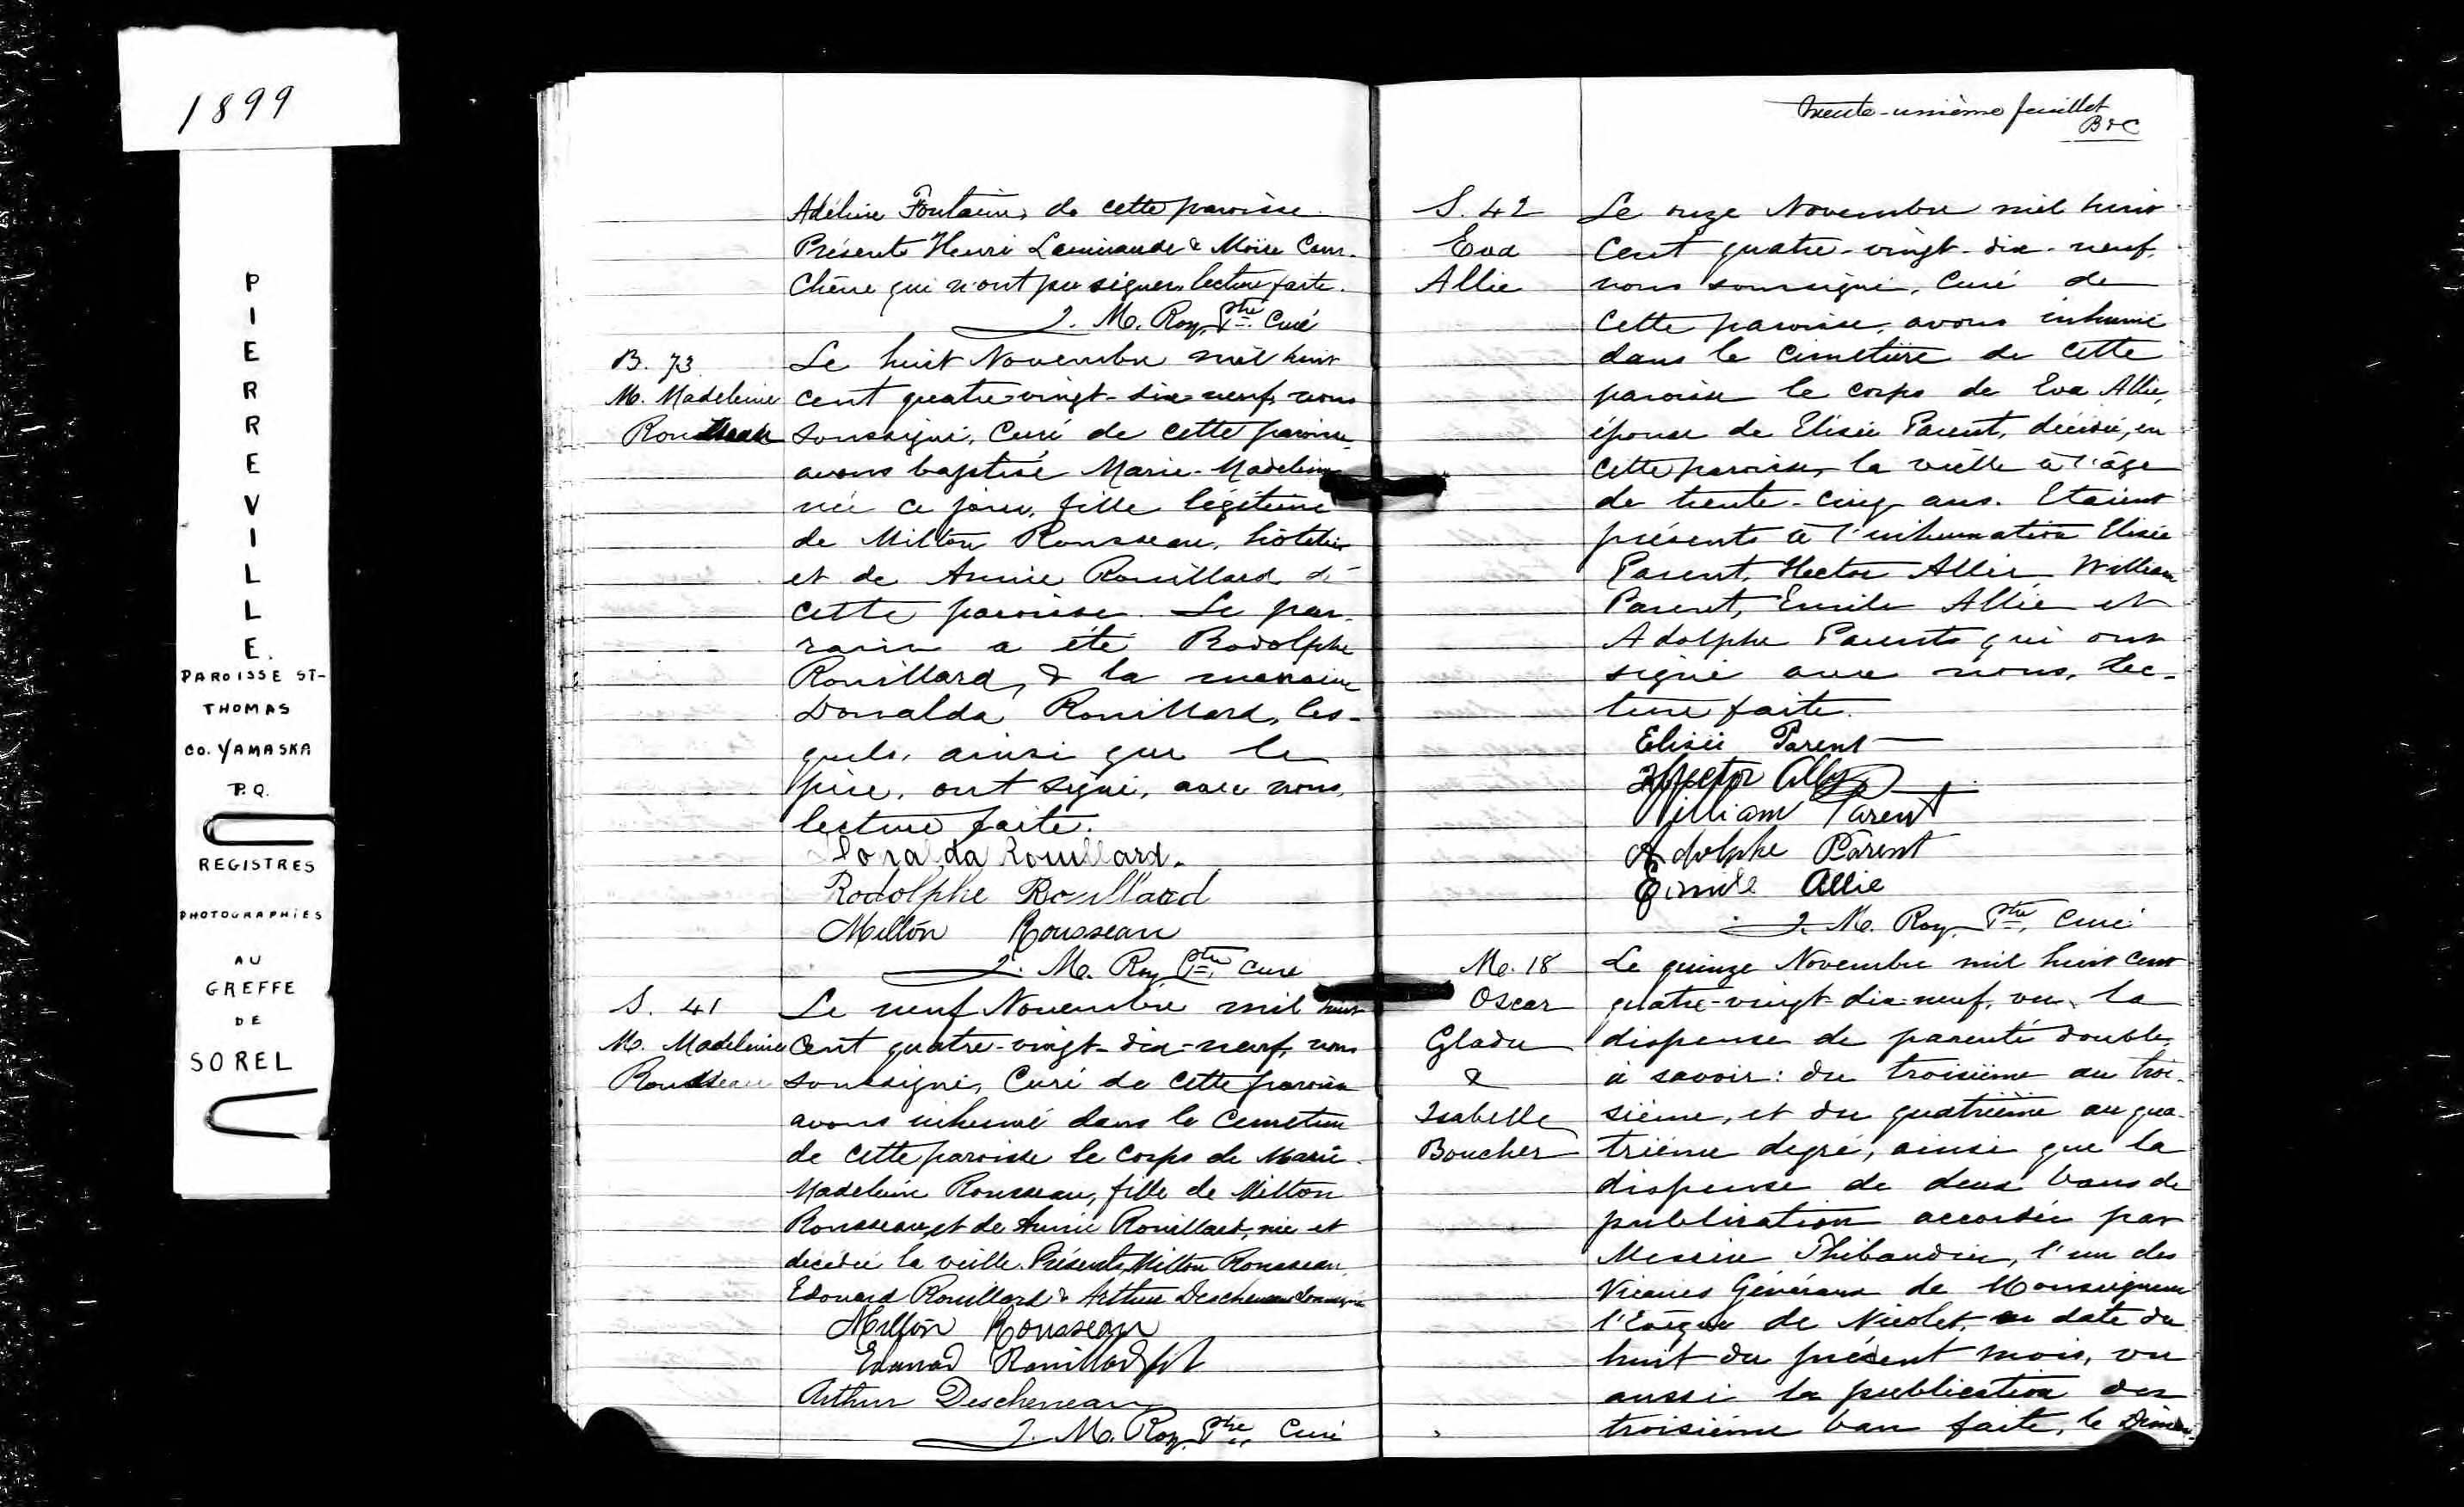 1899
PIERREVILLE.
PAROISSE ST-
THOMAS
CO. YAMASKA
P.Q.
REGISTRES
PHOTOGRAPHIES
AU
GREFFE
DE
SOREL
Adéline Fontaine, de cette paroisse.
Présents Henri Laminaude & Moïse Cour-
chêne qui n'ont pu signer, lecture faite.
J. M. Roy, Ptre Curé
B. 73
M. Madeleine
Rousseau
Le huit Novembre mil huit
cent quatre-vingt-dix-neuf, nous
soussigné, Curé de cette paroisse
avons baptisé Marie-Madeleine
née ce jour, fille légitime
de Milton Rousseau, hôtelier
et de Annie Rouillard de
cette paroisse. Le par-
rain a été Rodolphe
Rouillard, & la marraine
Donalda Rouillard, les-
quels, ainsi que le
père, ont signé, avec nous,
lecture faite.
Donalda Rouillard.
Rodolphe Rouillard
Milton Rousseau
J. M. Roy Ptre Curé
S. 41
M. Madeleine
Rousseau
Le neuf Novembre mil huit
cent quatre-vingt-dix-neuf, nous
soussigné, Curé de cette paroisse
avons inhumé dans le cimetière
de cette paroisse le corps de Marie-
Madeleine Rousseau, fille de Milton
Rousseau, et de Annie Rouillard, née et
décédée la veille. Présents, Milton Rousseau,
Edouard Rouillard & Arthur Descheneau
Milton Rousseau
Edouard Rouillard
Arthur Descheneau
J. M. Roy, Ptre, Curé
trente-unième feuillet
S. 42
Eva
Allie
Le onze Novembre mil huit
cent quatre-vingt-dix-neuf,
nous soussigné, Curé de
cette paroisse, avons inhumé
dans le cimetière de cette
paroisse le corps de Eva Allie,
épouse de Elisée Parent, décédée, en
cette paroisse, la veille à l'âge
de trente-cinq ans. Etaient
présents à l'inhumation Elisée
Parent, Hector Allie, William
Parent, Emile Allie et
Adolphe Parents qui ont
signé avec nous, lec-
ture faite.
Elisée Parent
Hector Ally
William Parent
Adolphe Parent
Emile Allie
J. M. Roy, Ptre, Curé
M. 18
Oscar
Gladu
&
Isabelle
Boucher
Le quinze Novembre mil huit cent
quatre-vingt-dix-neuf, vu la
dispense de parenté double,
à savoir: du troisième au troi-
sième, et du quatrième au qua-
trième degré, ainsi que la
dispense de deux bans de
publication accordée par
Messire Thibaudier, l'un des
Vicaires Généraux de Monseigneur
l'Evêque de Nicolet, en date du
huit du présent mois, vu
aussi la publication du
troisième ban faite, le Diman-